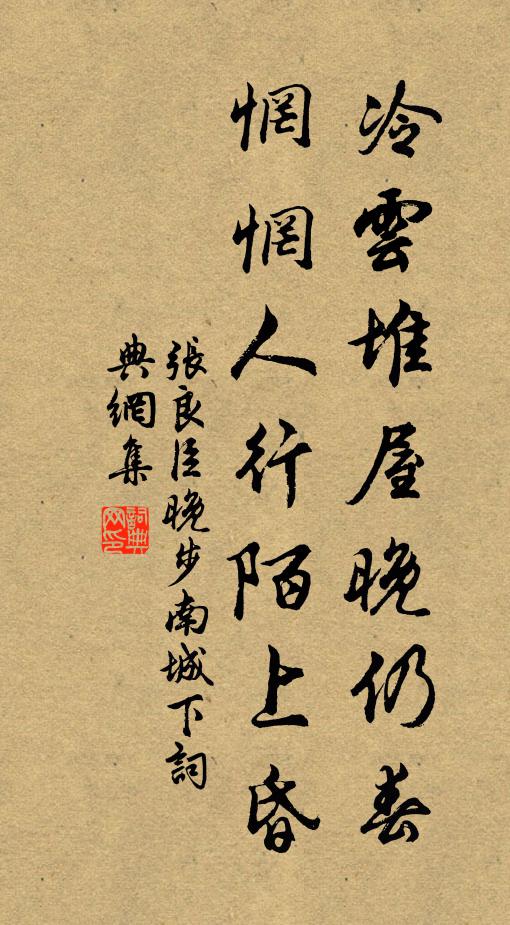 冷雲堆屋晚仍春
惘惘人行陌上昏
張良臣晚步南城下詞
典網集
詞典
網印